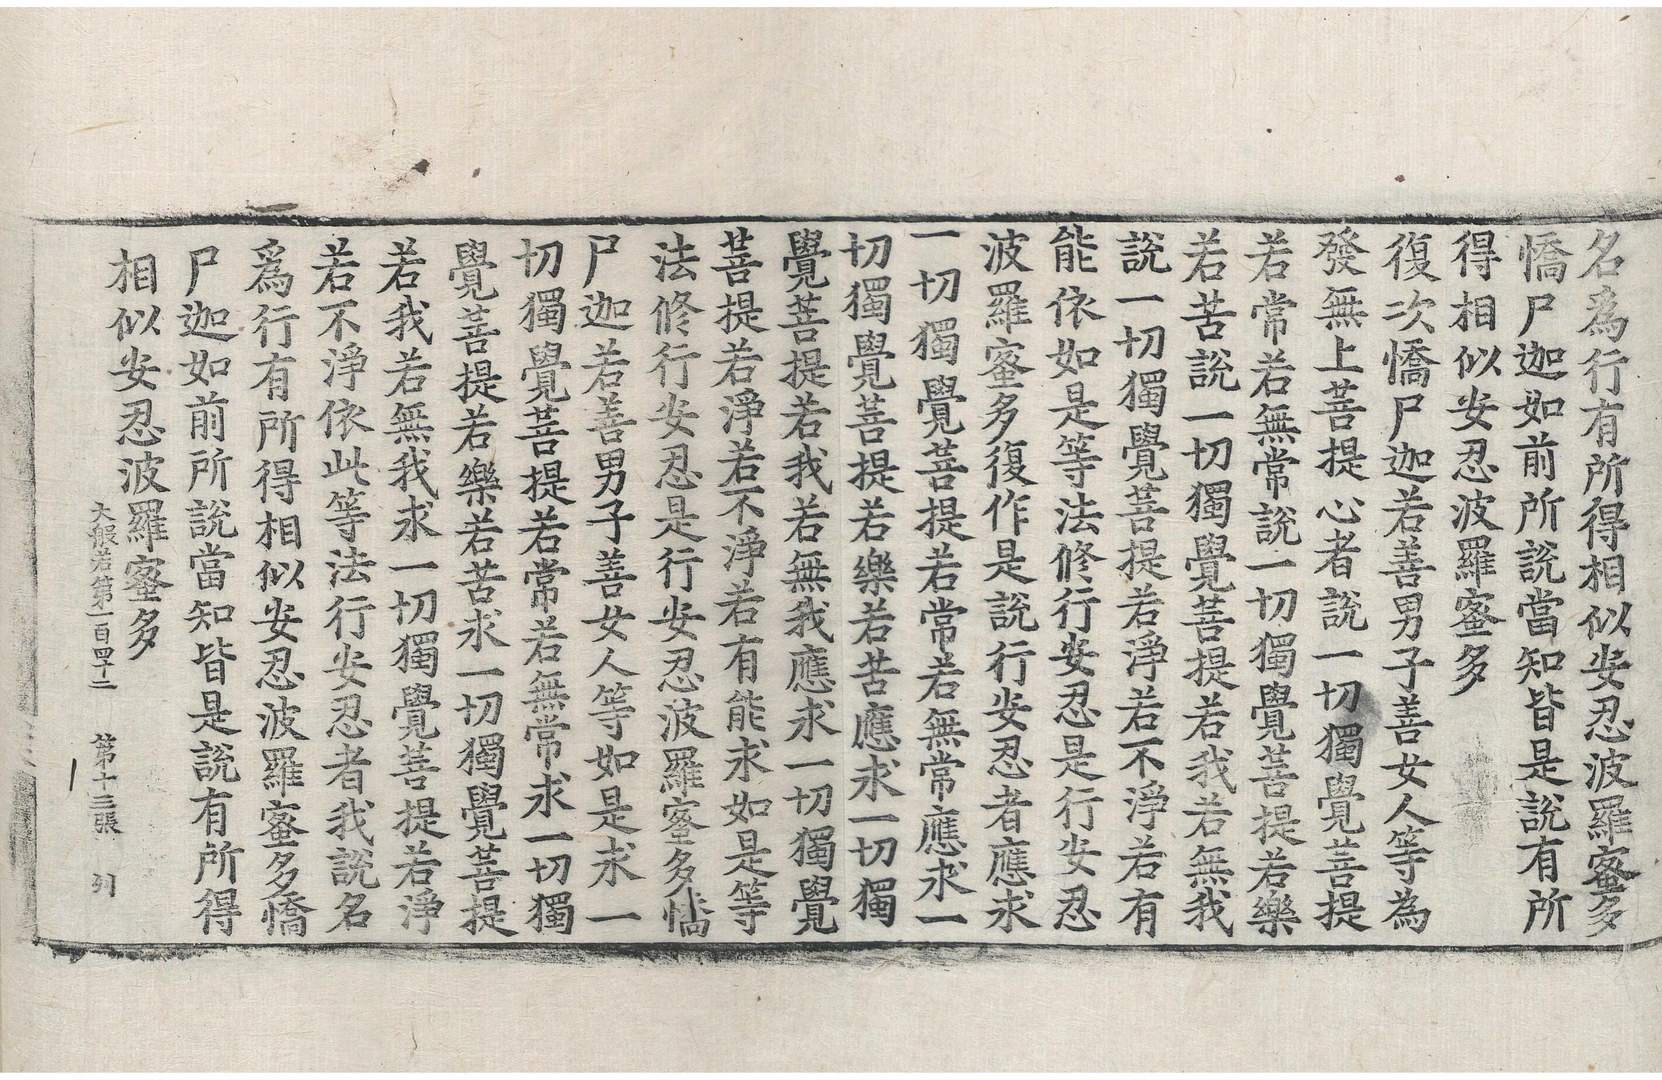 名爲行有所得相似安忍波羅蜜多
憍尸迦如前所說當知皆是說有所
得相似安忍波羅蜜多
復次憍尸迦若善男子善女人等為
發無上菩提心者說一切獨覺菩提
若常若無常說一切獨覺菩提若樂
若苦說一切獨覺菩提若我若無我
說一切獨覺菩提若淨若不淨若有
能依如是等法修行安忍是行安忍
波羅蜜多復作是說行安忍者應求
一切獨覺菩提若常若無常應求一
切獨覺菩提若樂若苦應求一切獨
覺菩提若我若無我應求一切獨覺
菩提若淨若不淨若有能求如是等
法修行安忍是行安忍波羅蜜多憍
尸迦若善男子善女人等如是求一
切獨覺菩提若常若無常求一切獨
覺菩提若樂若苦求一切獨覺菩提
若我若無我求一切獨覺菩提若淨
若不淨依此等法行安忍者我說名
爲行有所得相似安忍波羅蜜多憍
尸迦如前所說當知皆是說有所得
相似安忍波羅蜜多
大般若第一百四十二 第十三張 列